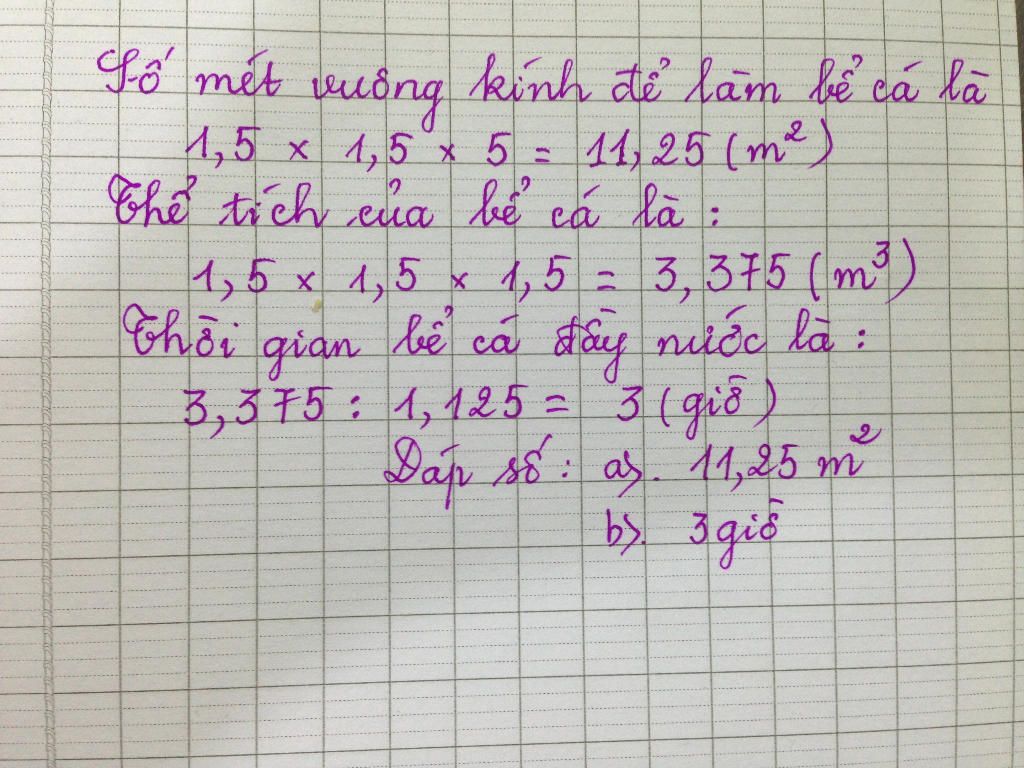 Số mét vuông kính để làm bể cá là
1,5 × 1,5 × 5 = 11,25 (m²)
Thể tích của bể cá là :
1,5 × 1,5 × 1,5 = 3,375 (m³)
Thời gian bể cá đầy nước là :
3,375 : 1,125 = 3 (giờ)
Đáp số : a). 11,25 m²
b). 3 giờ